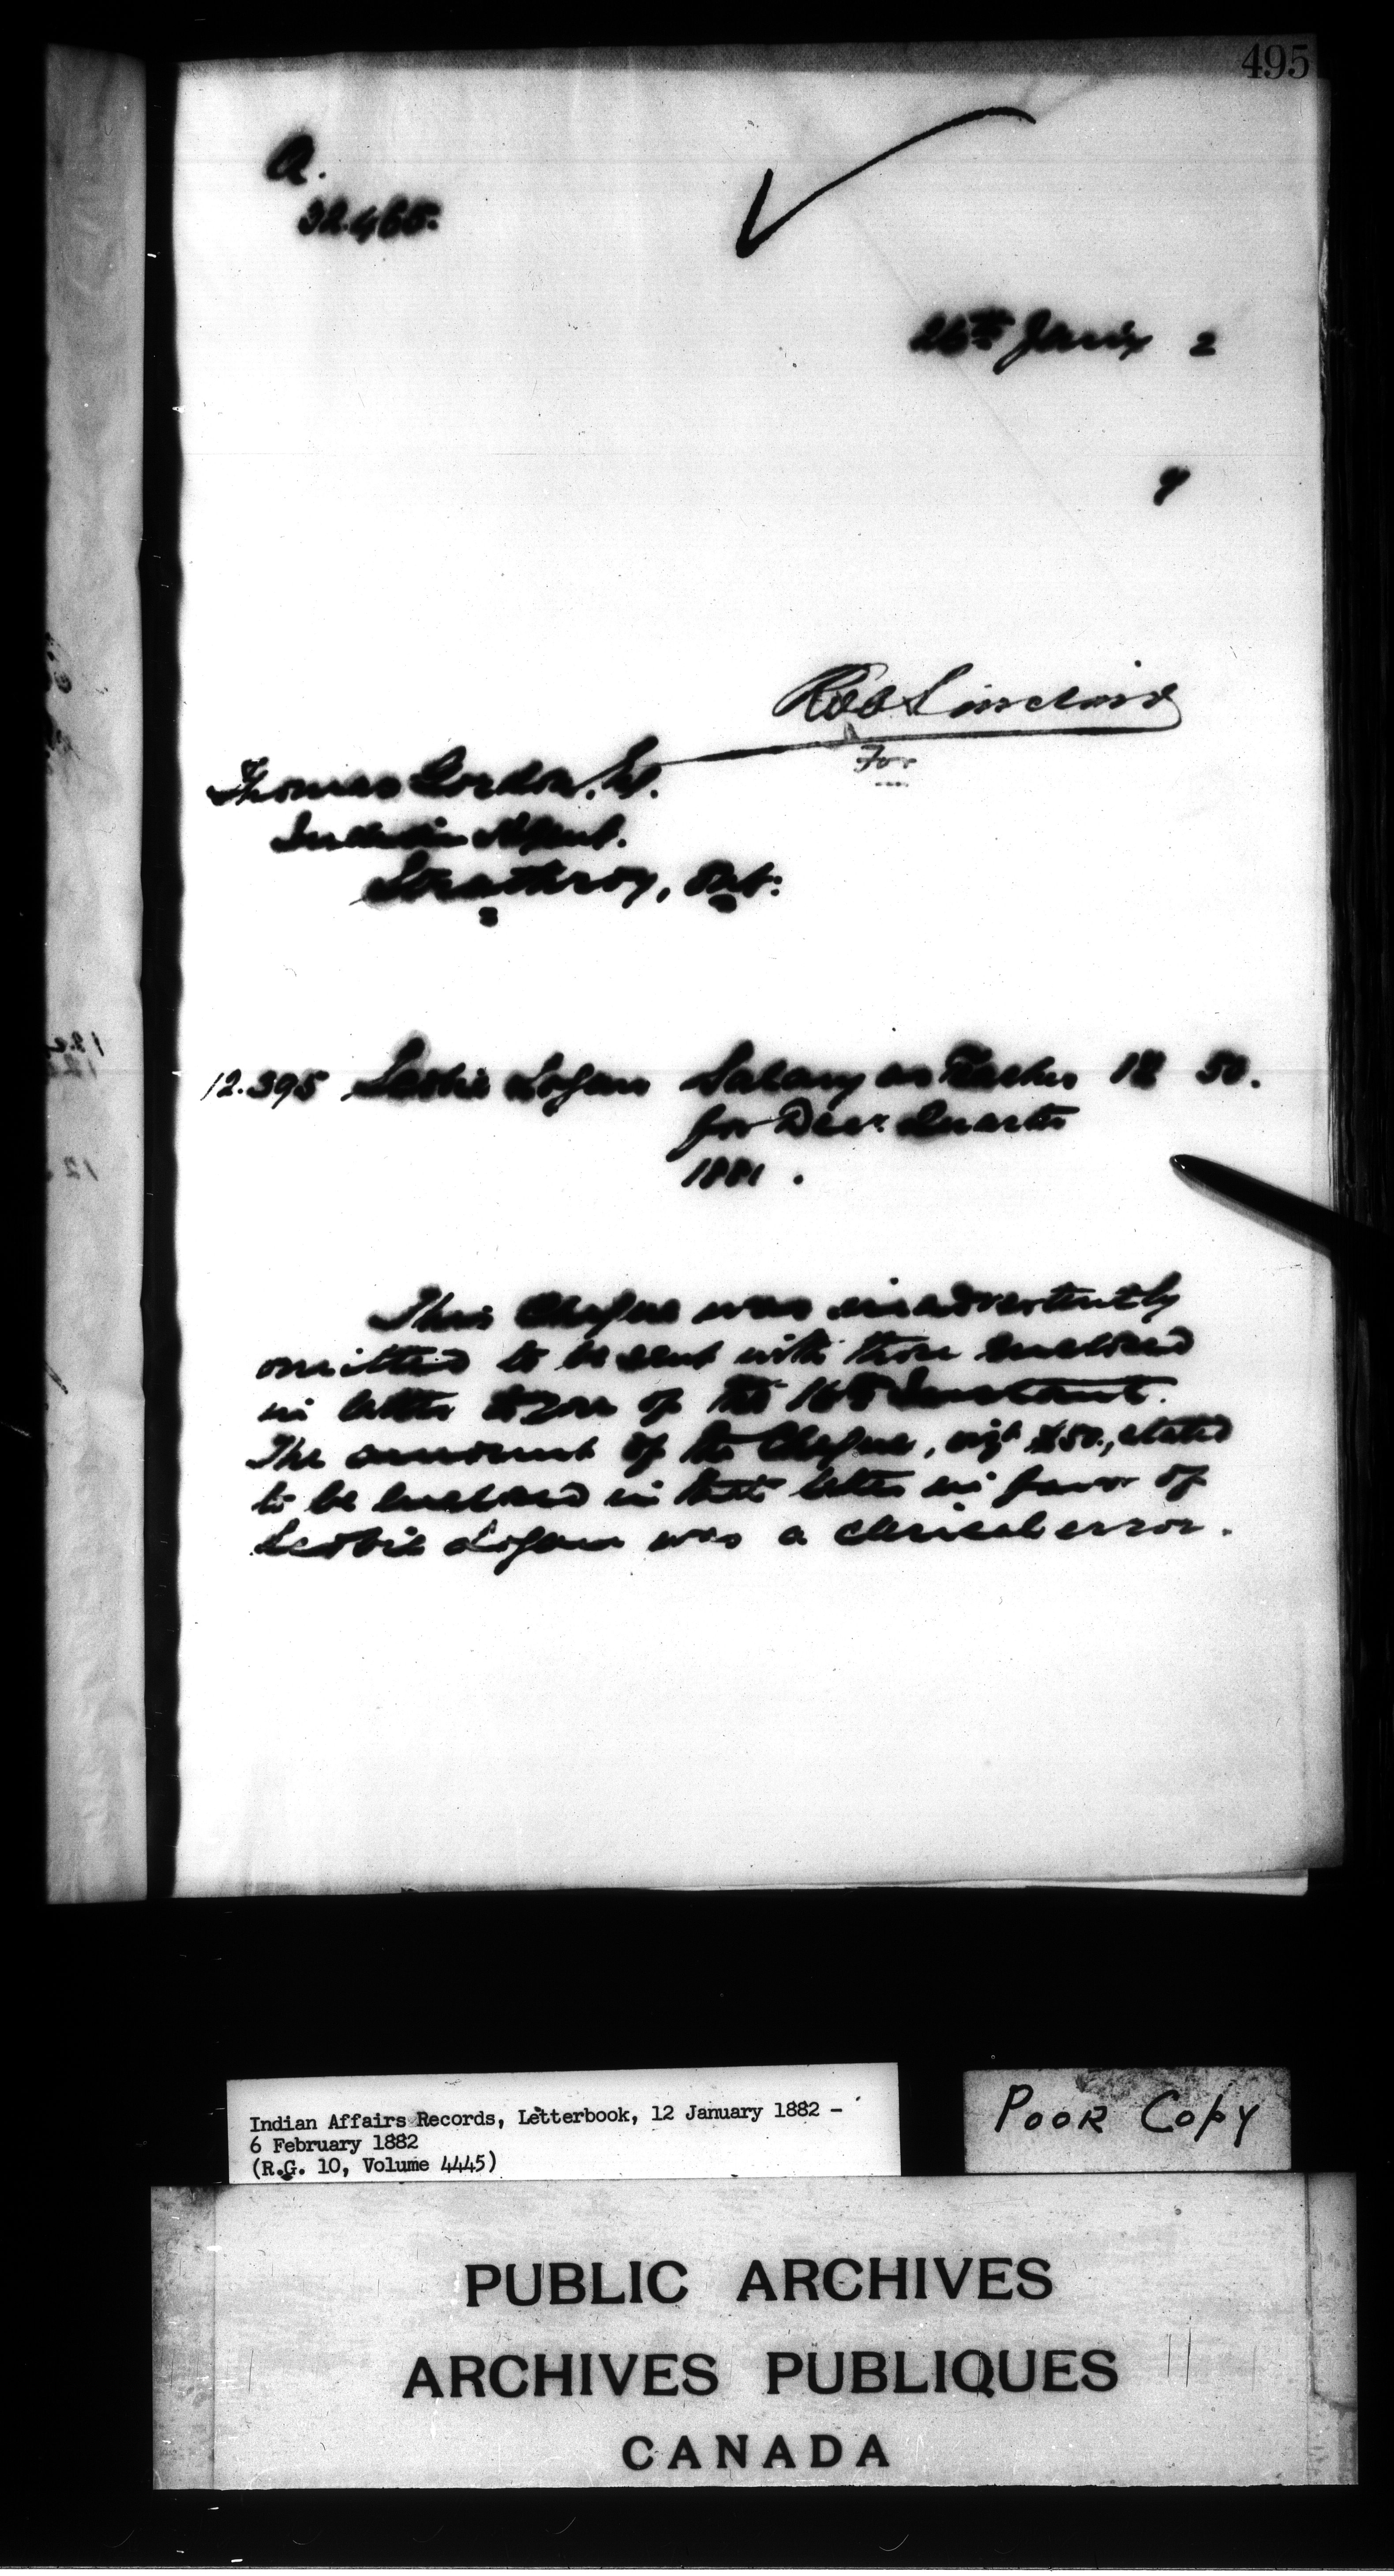 495
A.
32.465.
26th Jany 2
y
Rob Sinclair
For
Thomas Gordon, Esq.
Indian Agent.
Strathroy, Ont:
12.395 Leslie Logan Salary as Teacher 12 50.
for Decr. Quarter
1881.
This Cheque was inadvertently
omitted to be sent with those enclosed
in letter to you of the 16th Instant.
The amount of the Cheque, vizt $50., stated
to be enclosed in that letter in favor of
Leslie Logan was a clerical error.
Indian Affairs Records, Letterbook, 12 January 1882 -
6 February 1882
(R.G. 10, Volume 4445)
POOR COPY
PUBLIC ARCHIVES
ARCHIVES PUBLIQUES
CANADA